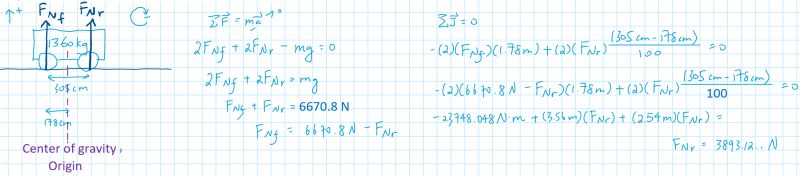 ↑+ F_Nf F_Nr
1360kg
305cm
178cm
Center of gravity,
Origin
ΣF⃗ = ma⃗ ↗0
2F_Nf + 2F_Nr - mg = 0
2F_Nf + 2F_Nr = mg
F_Nf + F_Nr = 6670.8 N
F_Nf = 6670.8N - F_Nr
-(2)(F_Nf)(1.78m) + (2)(F_Nr) (305cm-178cm)/100 = 0
-(2)(6670.8N - F_Nr)(1.78m) + (2)(F_Nr) (305cm-178cm)/100 = 0
-23748.048N·m + (3.56m)(F_Nr) + (2.54m)(F_Nr) =
F_Nr = 3893.12... N